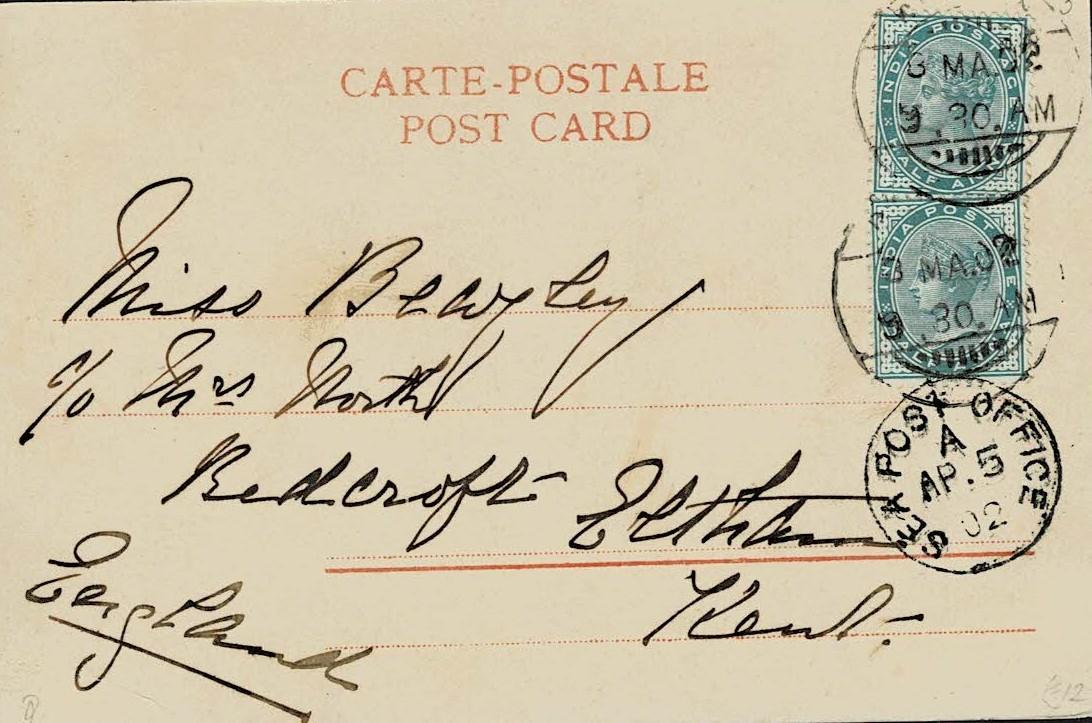 CARTE-POSTALE
POST CARD
INDIA POSTAGE
3 MA.02
9.30.AM
HALF A
INDIA POST
3 MA.02
9.30.AM
Miss Beagley
c/o Mrs North
Redcroft Eltham
Kent.
England
SEA POST OFFICE
A
AP.5
02